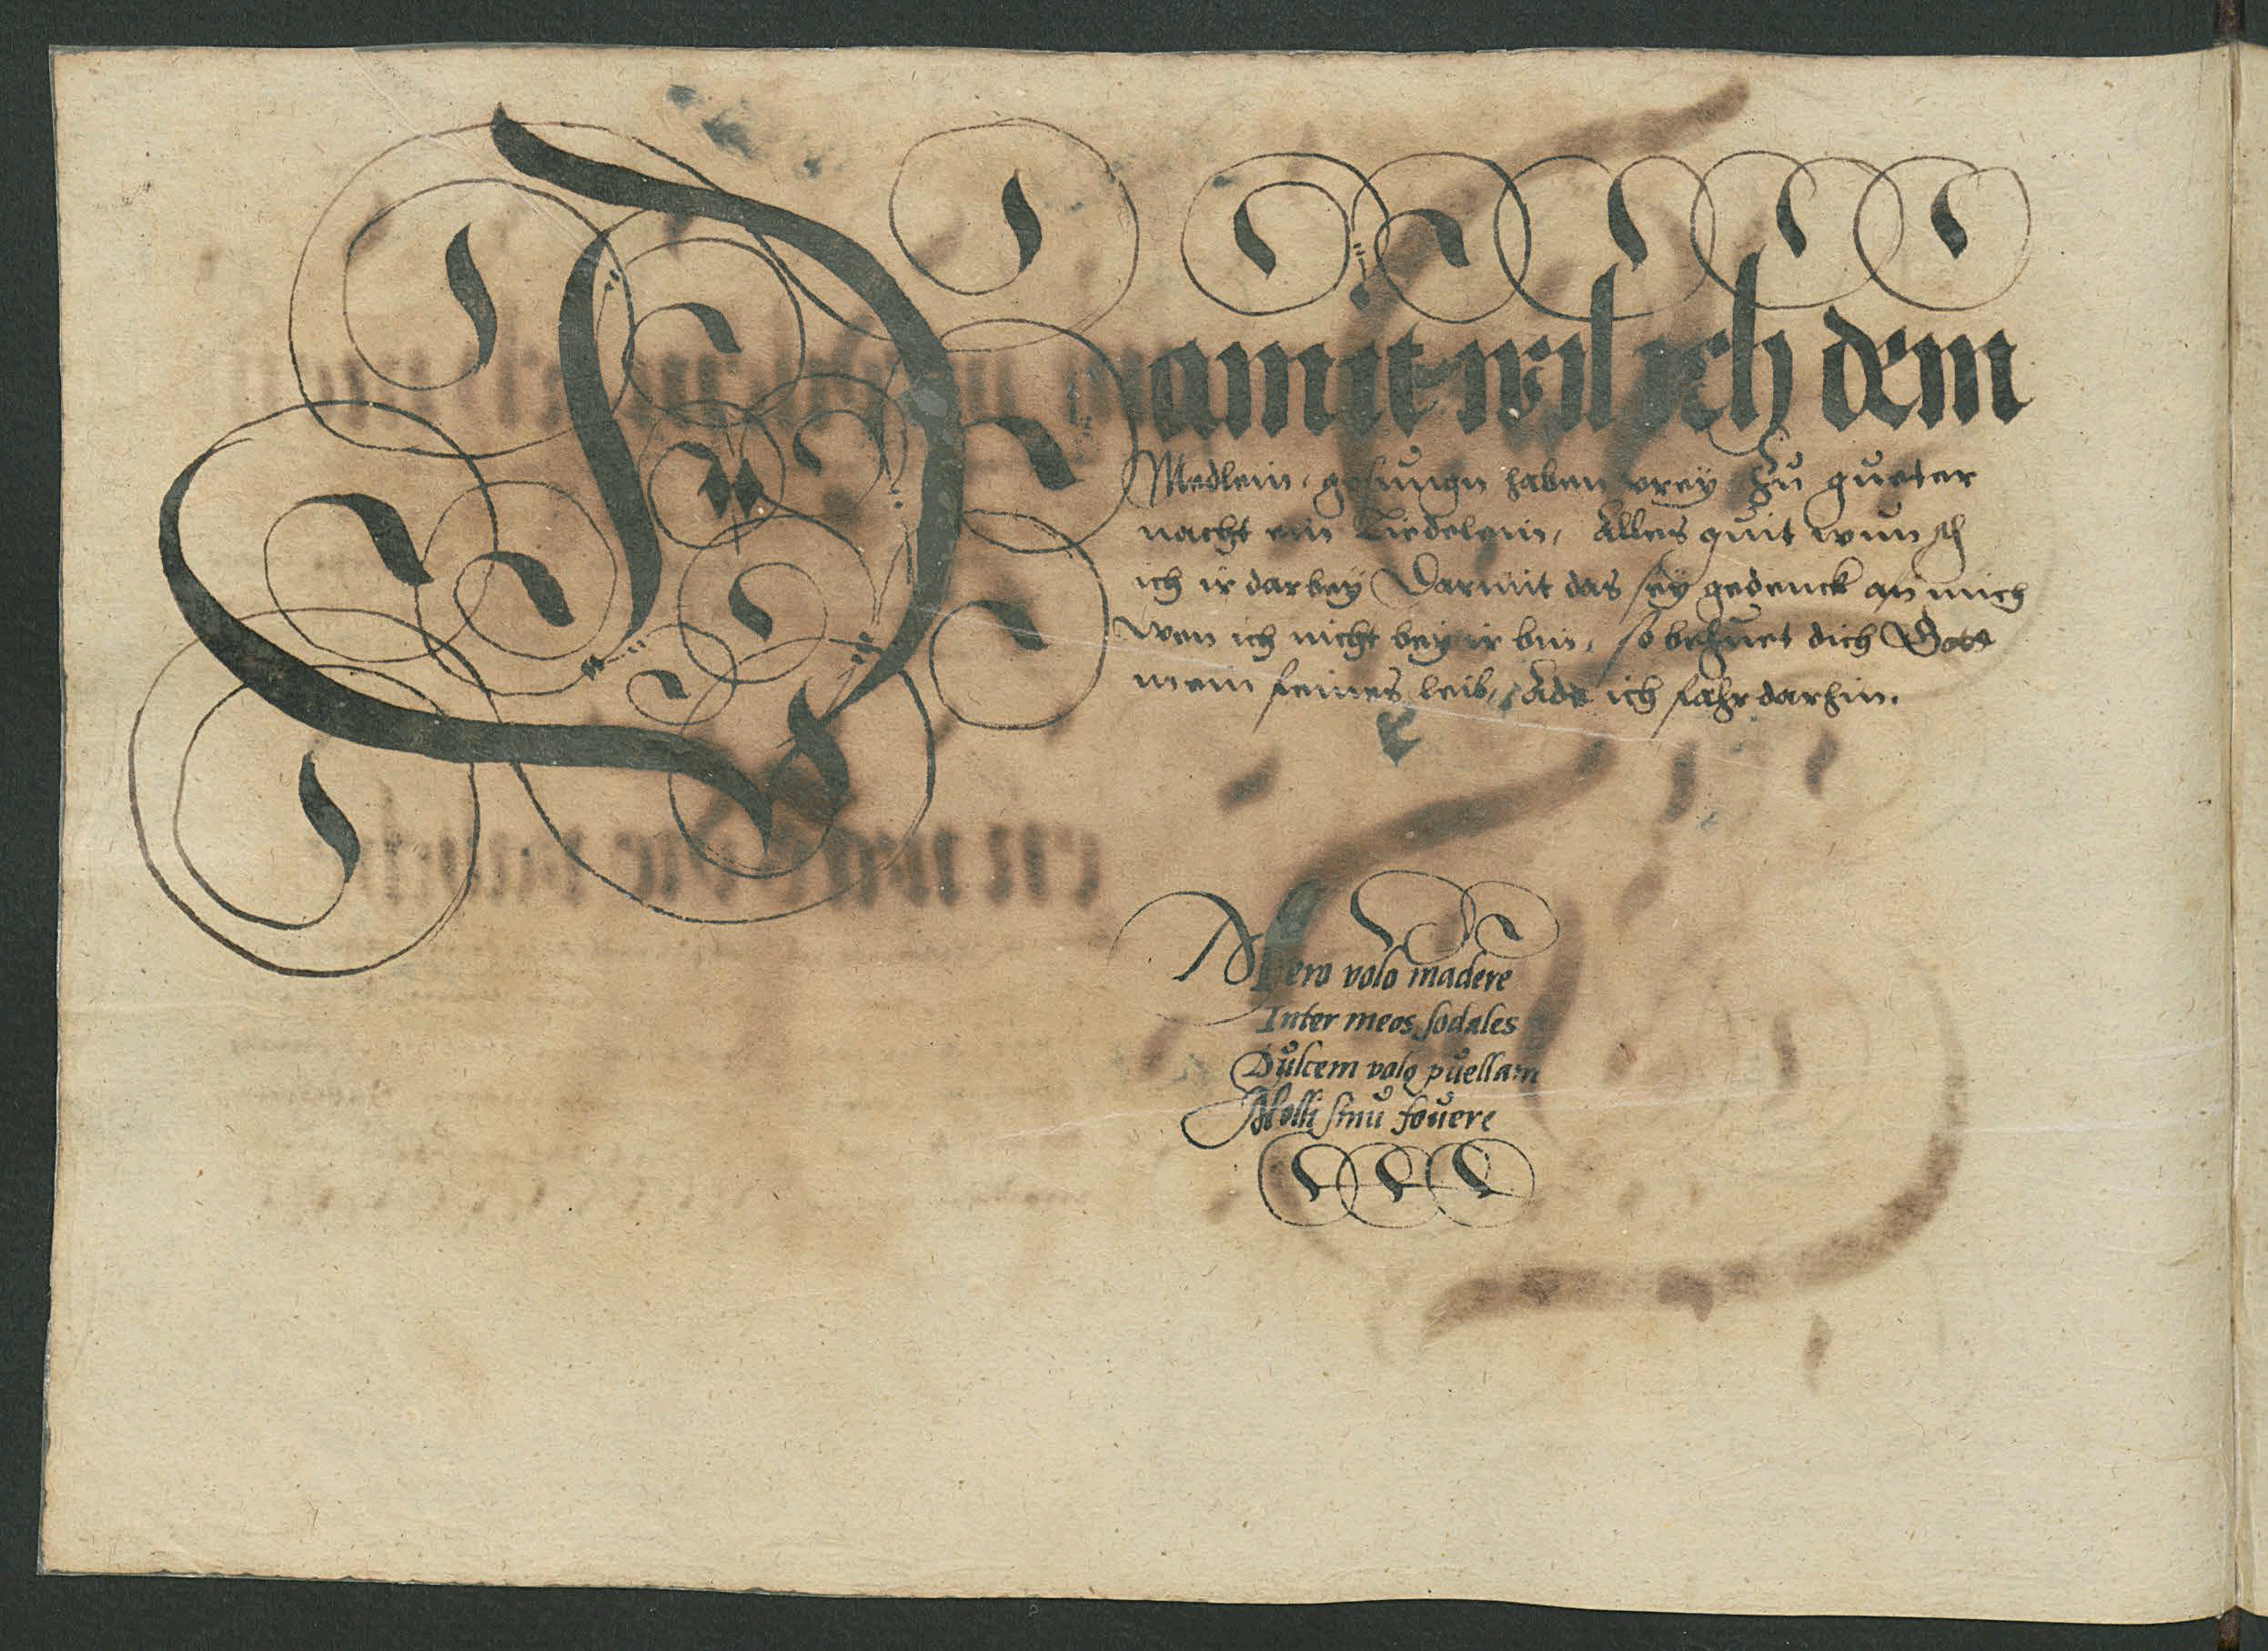 Damit wil ich dem
Medlein, gesungn haben vrey zu gueter
nacht ein Liedelein, Alles guit wunsch
ich ir darbey Darmit das sey gedenck an mich
wen ich nicht bey ir bin, so behuet dich Gott
mein feines leib, Ade ich fahr darhin.
Mero volo madere
Inter meos sodales
Dulcem volo puellam
Molli sinu fouere